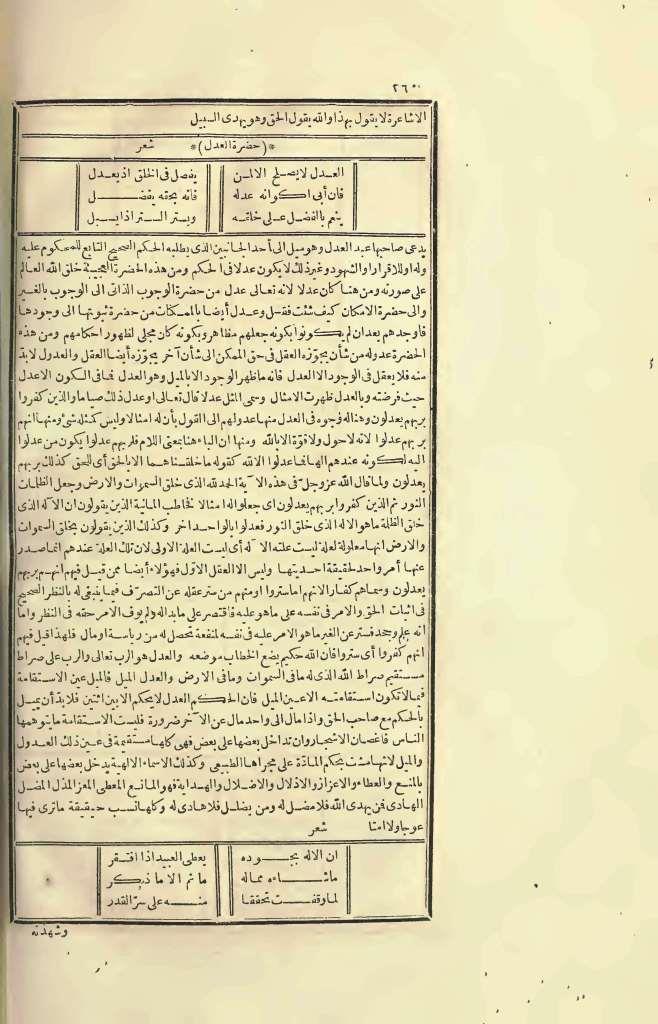 ٢٦٠
الاشاعرة لا يقول بهذا والله يقول الحق وهو يهدى السبيل
*(حضرة العدل)* شعر
العدل لا يصلح الا لمن يفصل فى الخلق اذ يعدل
فان أبى اكوانه عدله فانه بحقه يفضل
ينعم بالفضل على خلقه ويستر الستر اذا يسبل
يدعى صاحبها عبد العدل وهو ميل الى أحد الجانبين الذى يطلبه الحكم الصحيح التابع للمحكوم عليه
وله أو للاقرار أو الشهود وغير ذلك لا يكون عدلا فى الحكم ومن هذه الحضرة العجيبة خلق الله العالم
على صورته ومن هنا كان عدلا لانه تعالى عدل من حضرة الوجوب الذاتى الى الوجوب بالغير
والى حضرة الامكان كيف شئت فقل وعدل أيضا بالممكنات من حضرة ثبوتها الى وجودها
فأوجدهم بعد ان لم يكونوا بكونه جعلهم مظاهر وبكونه كان مجلى لظهور احكامهم ومن هذه
الحضرة عدوله من شأن يجوّزه العقل فى حق الممكن الى شأن آخر يجوّزه أيضا العقل والعدول لا بدّ
منه فلا يعقل فى الوجود الا العدل فانه ما ظهر الوجود الا بالميل وهو العدل فما فى الكون الا عدل
حيث فرضته وبالعدل ظهرت الامثال وسمى المثل عدلا قال تعالى أو عدل ذلك صياما والذين كفروا
بربهم يعدلون وهنا له وجوه فى العدل منها عدولهم الى القول بأن له امثالا وليس كمثله شئ ومنها انهم
بربهم عدلوا لانه لا حول ولا قوة الا بالله ومنها ان الباء هنا بمعنى اللام فلربهم عدلوا يكون من عدلوا
اليه لكونه عندهم الها فما عدلوا الا لله كقوله ما خلقناهما الا بالحق أى للحق كذلك بربهم
يعدلون ولما قال الله عز وجل فى هذه الآية الحمد لله الذى خلق السموات والارض وجعل الظلمات
والنور ثم الذين كفروا بربهم يعدلون أى جعلوا له امثالا فخاطب المانية الذين يقولون ان الاله الذى
خلق الظلمة ما هو الاله الذى خلق النور فعدلوا بالواحد آخر وكذلك الذين يقولون بخلق السموات
والارض انها معلولة لعلة ليست علته الاله أى ليست العلة الاولى لان تلك العلة عندهم انما صدر
عنها أمر واحد لحقيقة احديتها وليس الا العقل الاول فهؤلاء أيضا ممن قيل فيهم انهم بربهم
يعدلون وسماهم كفارا لانهم اما ستروا أو منهم من ستر عقله عن التصرّف فيما ينبغى له بالنظر الصحيح
فى اثبات الحق والامر فى نفسه على ما هو عليه فاقتصر على ما بدا له ولم يوف الامر حقه فى النظر واما
انه علم وجحد فستر عن الغير ما هو الامر عليه فى نفسه لمنفعة تحصل له من رياسة أو مال فلهذا قيل فيهم
انهم كفروا أى ستروا فان الله حكيم يضع الخطاب موضعه والعدل هو الرب تعالى والرب على صراط
مستقيم صراط الله الذى له ما فى السموات وما فى الارض والعدل الميل فالميل عين الاستقامة
فيما لا تكون استقامته الا عين الميل فان الحكم العدل لا يحكم الا بين اثنين فلا بدّ أن يميل
بالحكم مع صاحب الحق واذا مال الى واحد مال عن الآخر ضرورة فليست الاستقامة ما يتوهمها
الناس فاغصان الاشجار وان تداخل بعضها على بعض فهى كلها مستقيمة فى عين ذلك العدول
والميل لانها مشت بحكم المادّة على مجراها الطبيعى وكذلك الاسماء الالهية يدخل بعضها على بعض
بالمنع والعطاء والاعزاز والاذلال والاضلال والهداية فهو المانع المعطى المعز المذل المضل
الهادى فمن يهدى الله فلا مضل له ومن يضلل فلا هادى له وكلها نسب حقيقة ما ترى فيها
عوجا ولا امتا شعر
ان الاله بجوده يعطى العبيد اذا افتقر
ما شاءه مما له ما ثم الا ما ذكر
لما وقفت تحققا منه على سرّ القدر
وشهدته